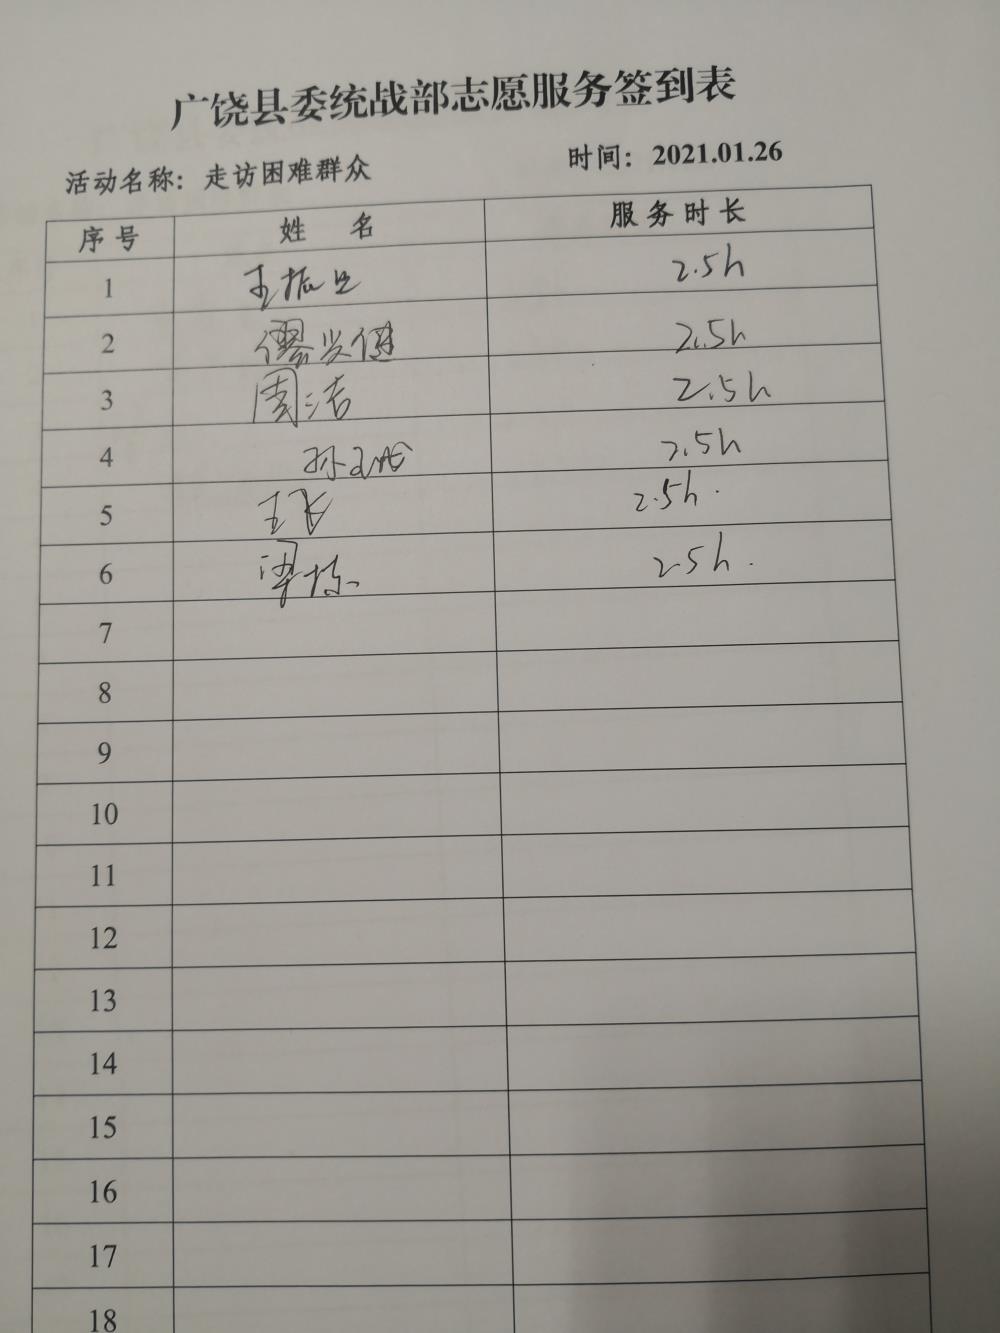 广饶县委统战部志愿服务签到表
活动名称：走访困难群众 时间：2021.01.26
序号 姓名 服务时长
1 王振 2.5h
2 2.5h
3 周洁 2.5h
4 孙 2.5h
5 王飞 2.5h.
6 梁栋 2.5h.
7
8
9
10
11
12
13
14
15
16
17
18